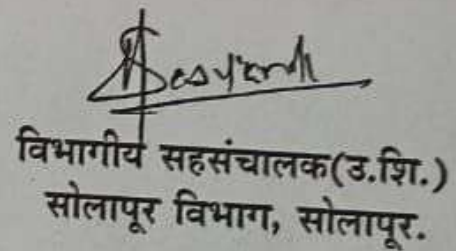 विभागीय सहसंचालक(उ.शि.)
सोलापूर विभाग, सोलापूर.